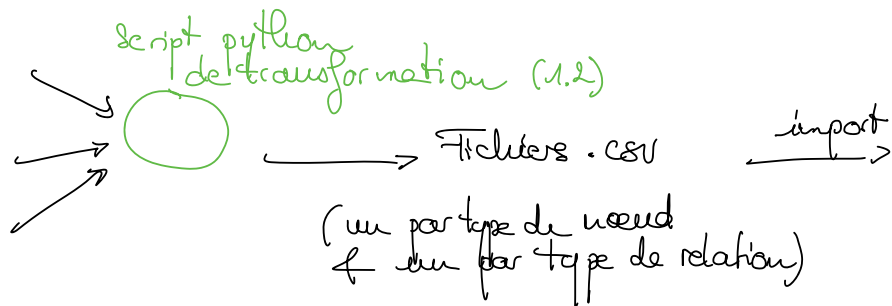 script python
de transformation (1.2)
import
Fichiers .csv
(un par type de nœud
& un par type de relation)